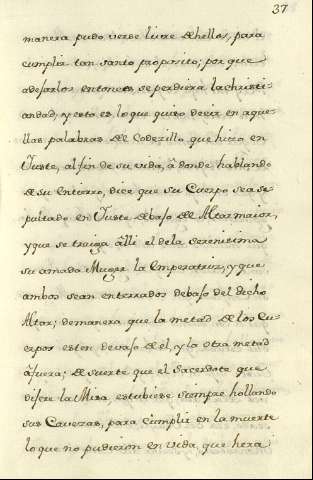 37
manera pudo verse livre de hellos, para
cumplir tan santo proposito; por que
a dejarlos entonces, se perdiera la christi-
andad; y esto es, lo que quiso decir en aque-
llas palabras del Coderillo que hizo en
Yuste, al fin de su vida, à donde hablando
de su entierro, dice que su Cuerpo sea se-
pultado en Yuste debajo del Altar maior,
y que se traiga àlli el de la serenisima
su amada Muger la Imperatriz, y que
ambos sean enterrados debajo del dicho
Altar; de manera que la metad de los Cu-
erpos esten devajo de el, y la otra metad
àfuera; de suerte que el Sacerdote que
dijere la Misa, estubiese siempre hollando
sus Cavezas, para cumplir en la muerte
lo que no pudieron en vida, que hera